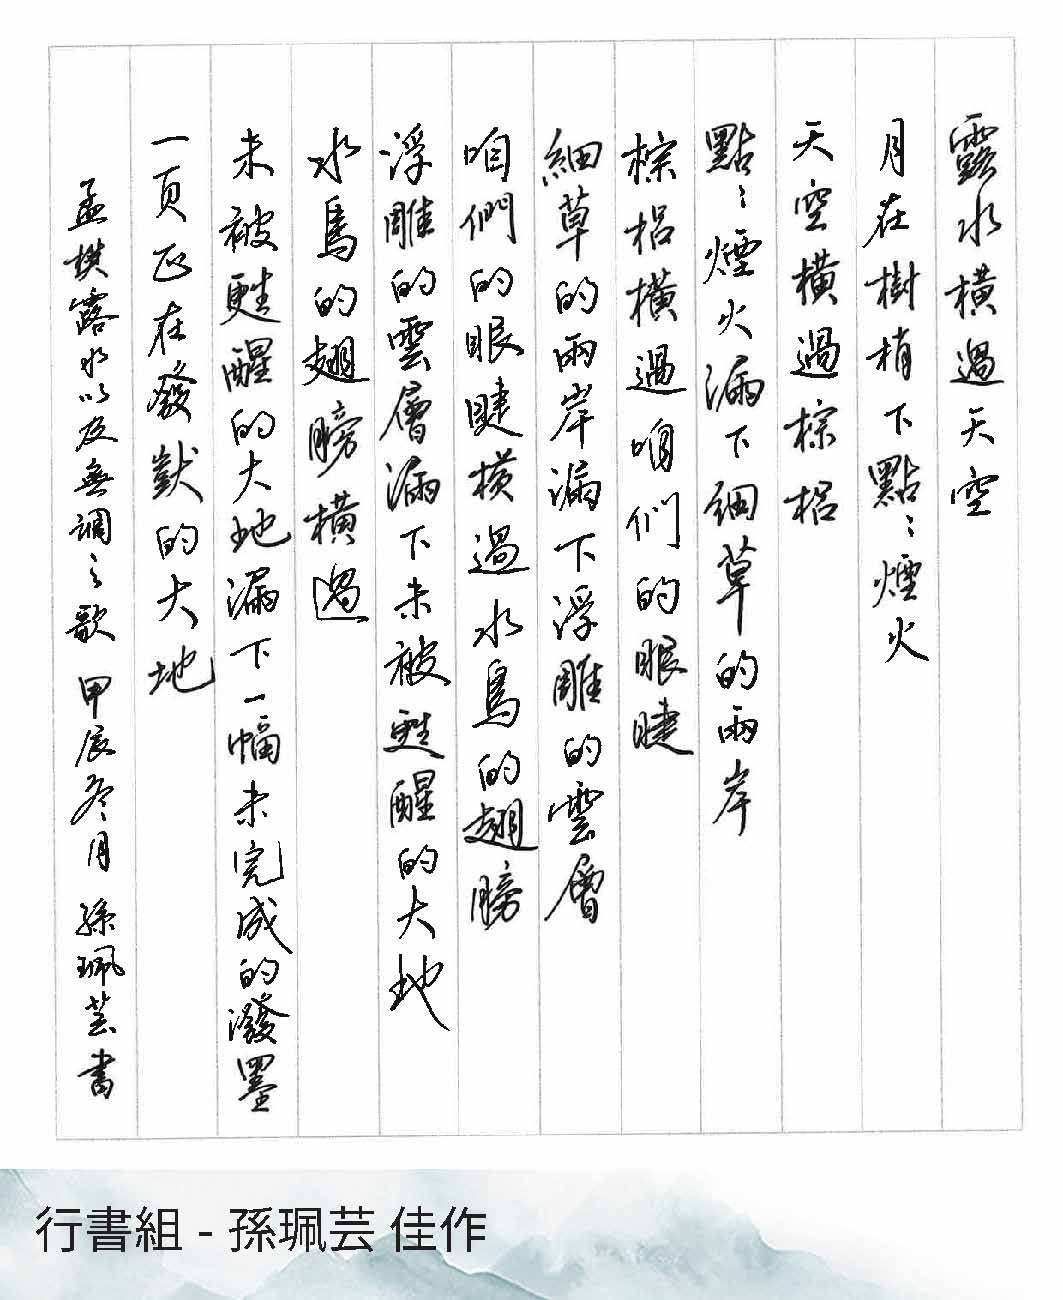 露水橫過天空
月在樹梢下點點煙火
天空橫過棕梠
點點煙火漏下細草的兩岸
棕梠橫過咱们的眼睫
細草的兩岸漏下浮雕的雲層
咱們的眼睫橫過水鳥的翅膀
浮雕的雲層漏下未被甦醒的大地
水鳥的翅膀橫過
未被甦醒的大地漏下一幅未完成的潑墨
一頁正在發獃的大地
孟樊露水以及無調之歌 甲辰冬月 孫珮芸書
行書組 - 孫珮芸 佳作